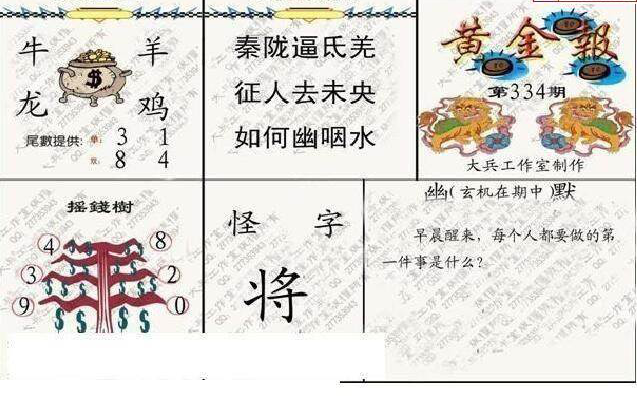 牛 羊
龙 鸡
尾數提供: 单: 3 1
双: 8 4
秦陇逼氐羌
征人去未央
如何幽咽水
黄金報
第334期
大兵工作室制作
摇錢樹
4 8
3 2
9 0
怪 字
将
幽(玄机在期中)默
早晨醒来，每个人都要做的第
一件事是什么?